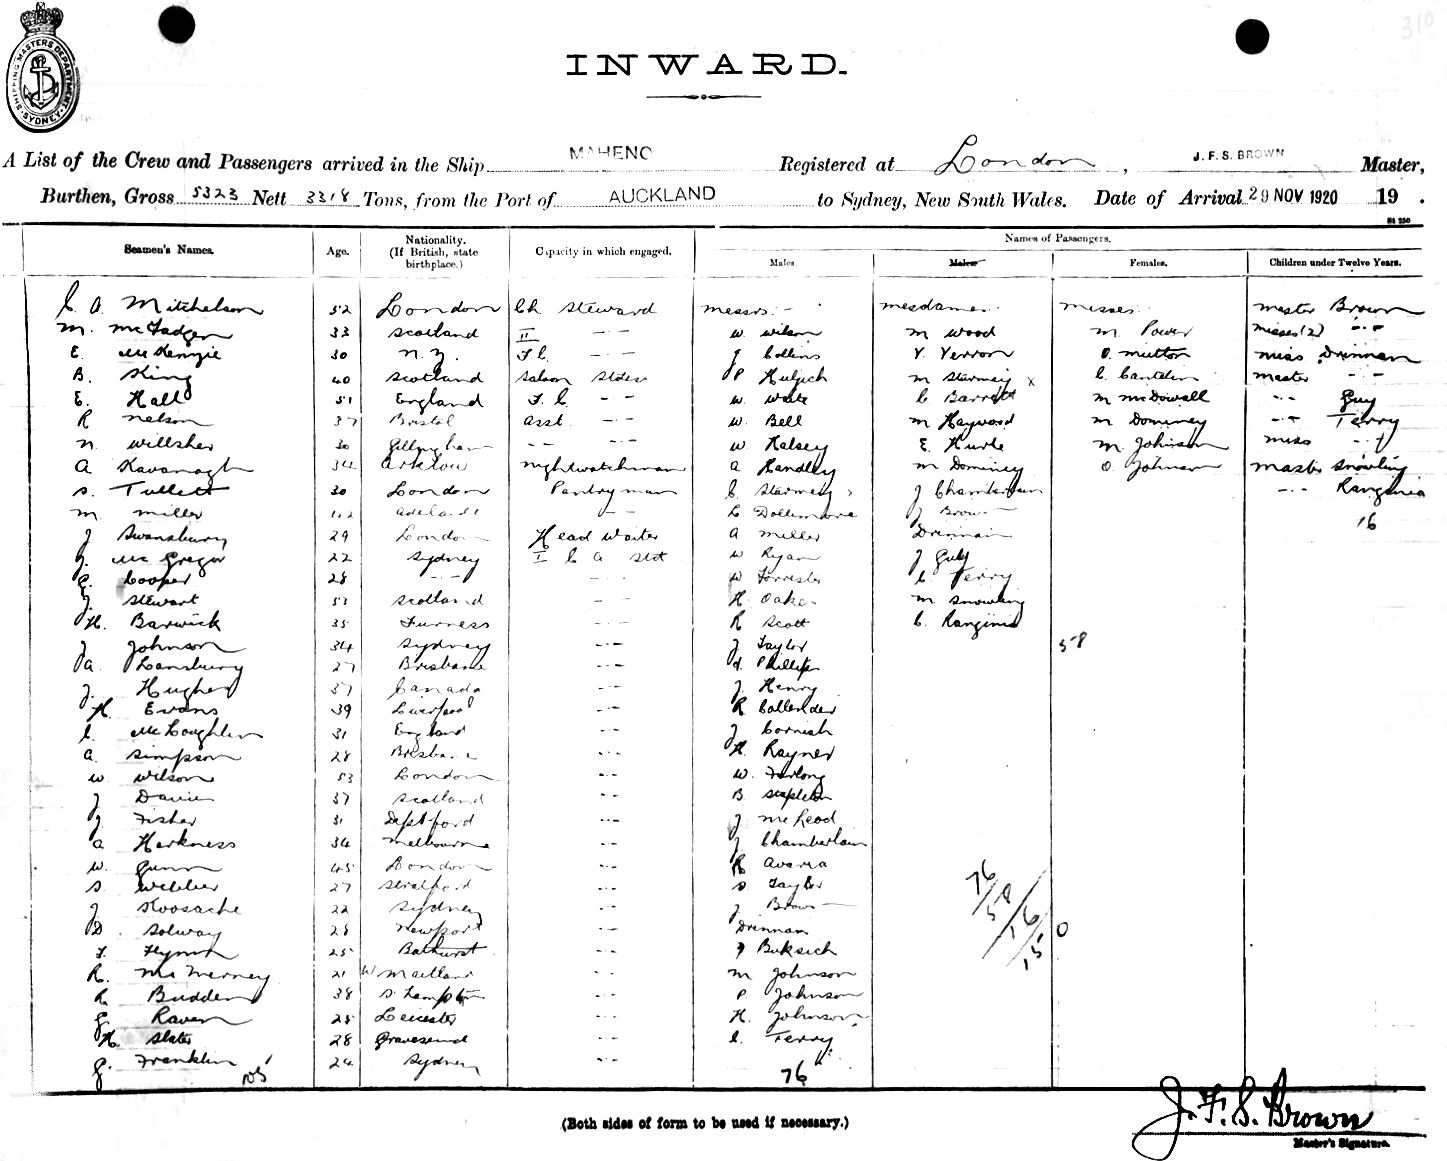 310
SHIPPING MASTERS DEPARTMENT
SYDNEY
INWARD.
A List of the Crew and Passengers arrived in the Ship MAHENO Registered at London, J. F. S. BROWN Master,
Burthen, Gross 5323 Nett 3318 Tons, from the Port of AUCKLAND to Sydney, New South Wales. Date of Arrival 29 NOV 1920 19 .
Names of Passengers.
Seamen's Names. Age. Nationality. (If British, state birthplace.) Capacity in which engaged. Males. Males Females. Children under Twelve Years.
C A Mitchelson 52 London Ch Steward Messrs - Mesdames Misses Master Brown
M. McFadgen 33 Scotland II -·- W. Wilson M Wood M Power Misses (2) -·-
E. McKenzie 30 N.Z. F C -·- J Collins V. Verron O. Mutton Miss Drinnan
B. King 40 Scotland Saloon Stoies P M Starmey x C. Cantelin Master -·-
E. Hall 51 England F. C. - - W. Waite C Barrett M McDowall -·- Guy
R Nelson 37 Bristol Asst. -·- W. Bell M Hayward M Dominey -·- Terry
N. Willsher 30 Gillingham -- -·- W Kelsey E. Hurle M. Johnson Miss -·-
A Kavanagh 34 Arklow Nightwatchman A Handley M Dominey O Johnson Master Snowling
S. Tullett 30 London Pantryman C. Starmey J Chamberlain -·- Ranginia
M. Miller 42 Adelaide -·- L Dollimore J Brown 16
J Swansbury 29 London Head Waiter A Miller Drinnan
J. McGregor 22 Sydney I C A Std W Ryan J Guy
G. Cooper 28 -·- -·- W Forrester C Terry
J. Stewart 53 Scotland -·- H. Oakes M. Snowling
H. Barwick 35 Furness -·- R Scott C. Ranginia
J Johnson 34 Sydney -·- J Taylor 58
A. Lansbury 27 Brisbane -·- Phillips
J. Hughes 37 Canada -·- J. Henry
H. Evans 39 Liverpool -·- R Callender
C. McLoughlin 31 England -·- J Cornish
A. Simpson 28 Brisbane -·- H. Rayner
W Wilson 53 London -·- W. Furlong
J Davies 37 Scotland -·- B Stapleton
J Fisher 31 Deptford -·- J McLeod
A Harkness 34 Melbourne -·- J Chamberlain
W. Gunn 45 London -·- R Avaria
S. Webber 27 Stratford -·- S Taylor
J Koosache 22 Sydney -·- J Brown
D. Solway 28 Newport -·- Drinnan
F. Flynn 25 Bathurst -·- J Buksich
R. McInerney 21 W Maitland -·- M Johnson
R Budden 38 S'hampton -·- P Johnson
G Raven 25 Leicester -·- H. Johnson
H. Slater 28 Gravesend -·- C. Terry
G. Franklin 24 Sydney -·-
76
76/58/16/150
(Both sides of form to be used if necessary.)
J. F. S. Brown
Master's Signature.